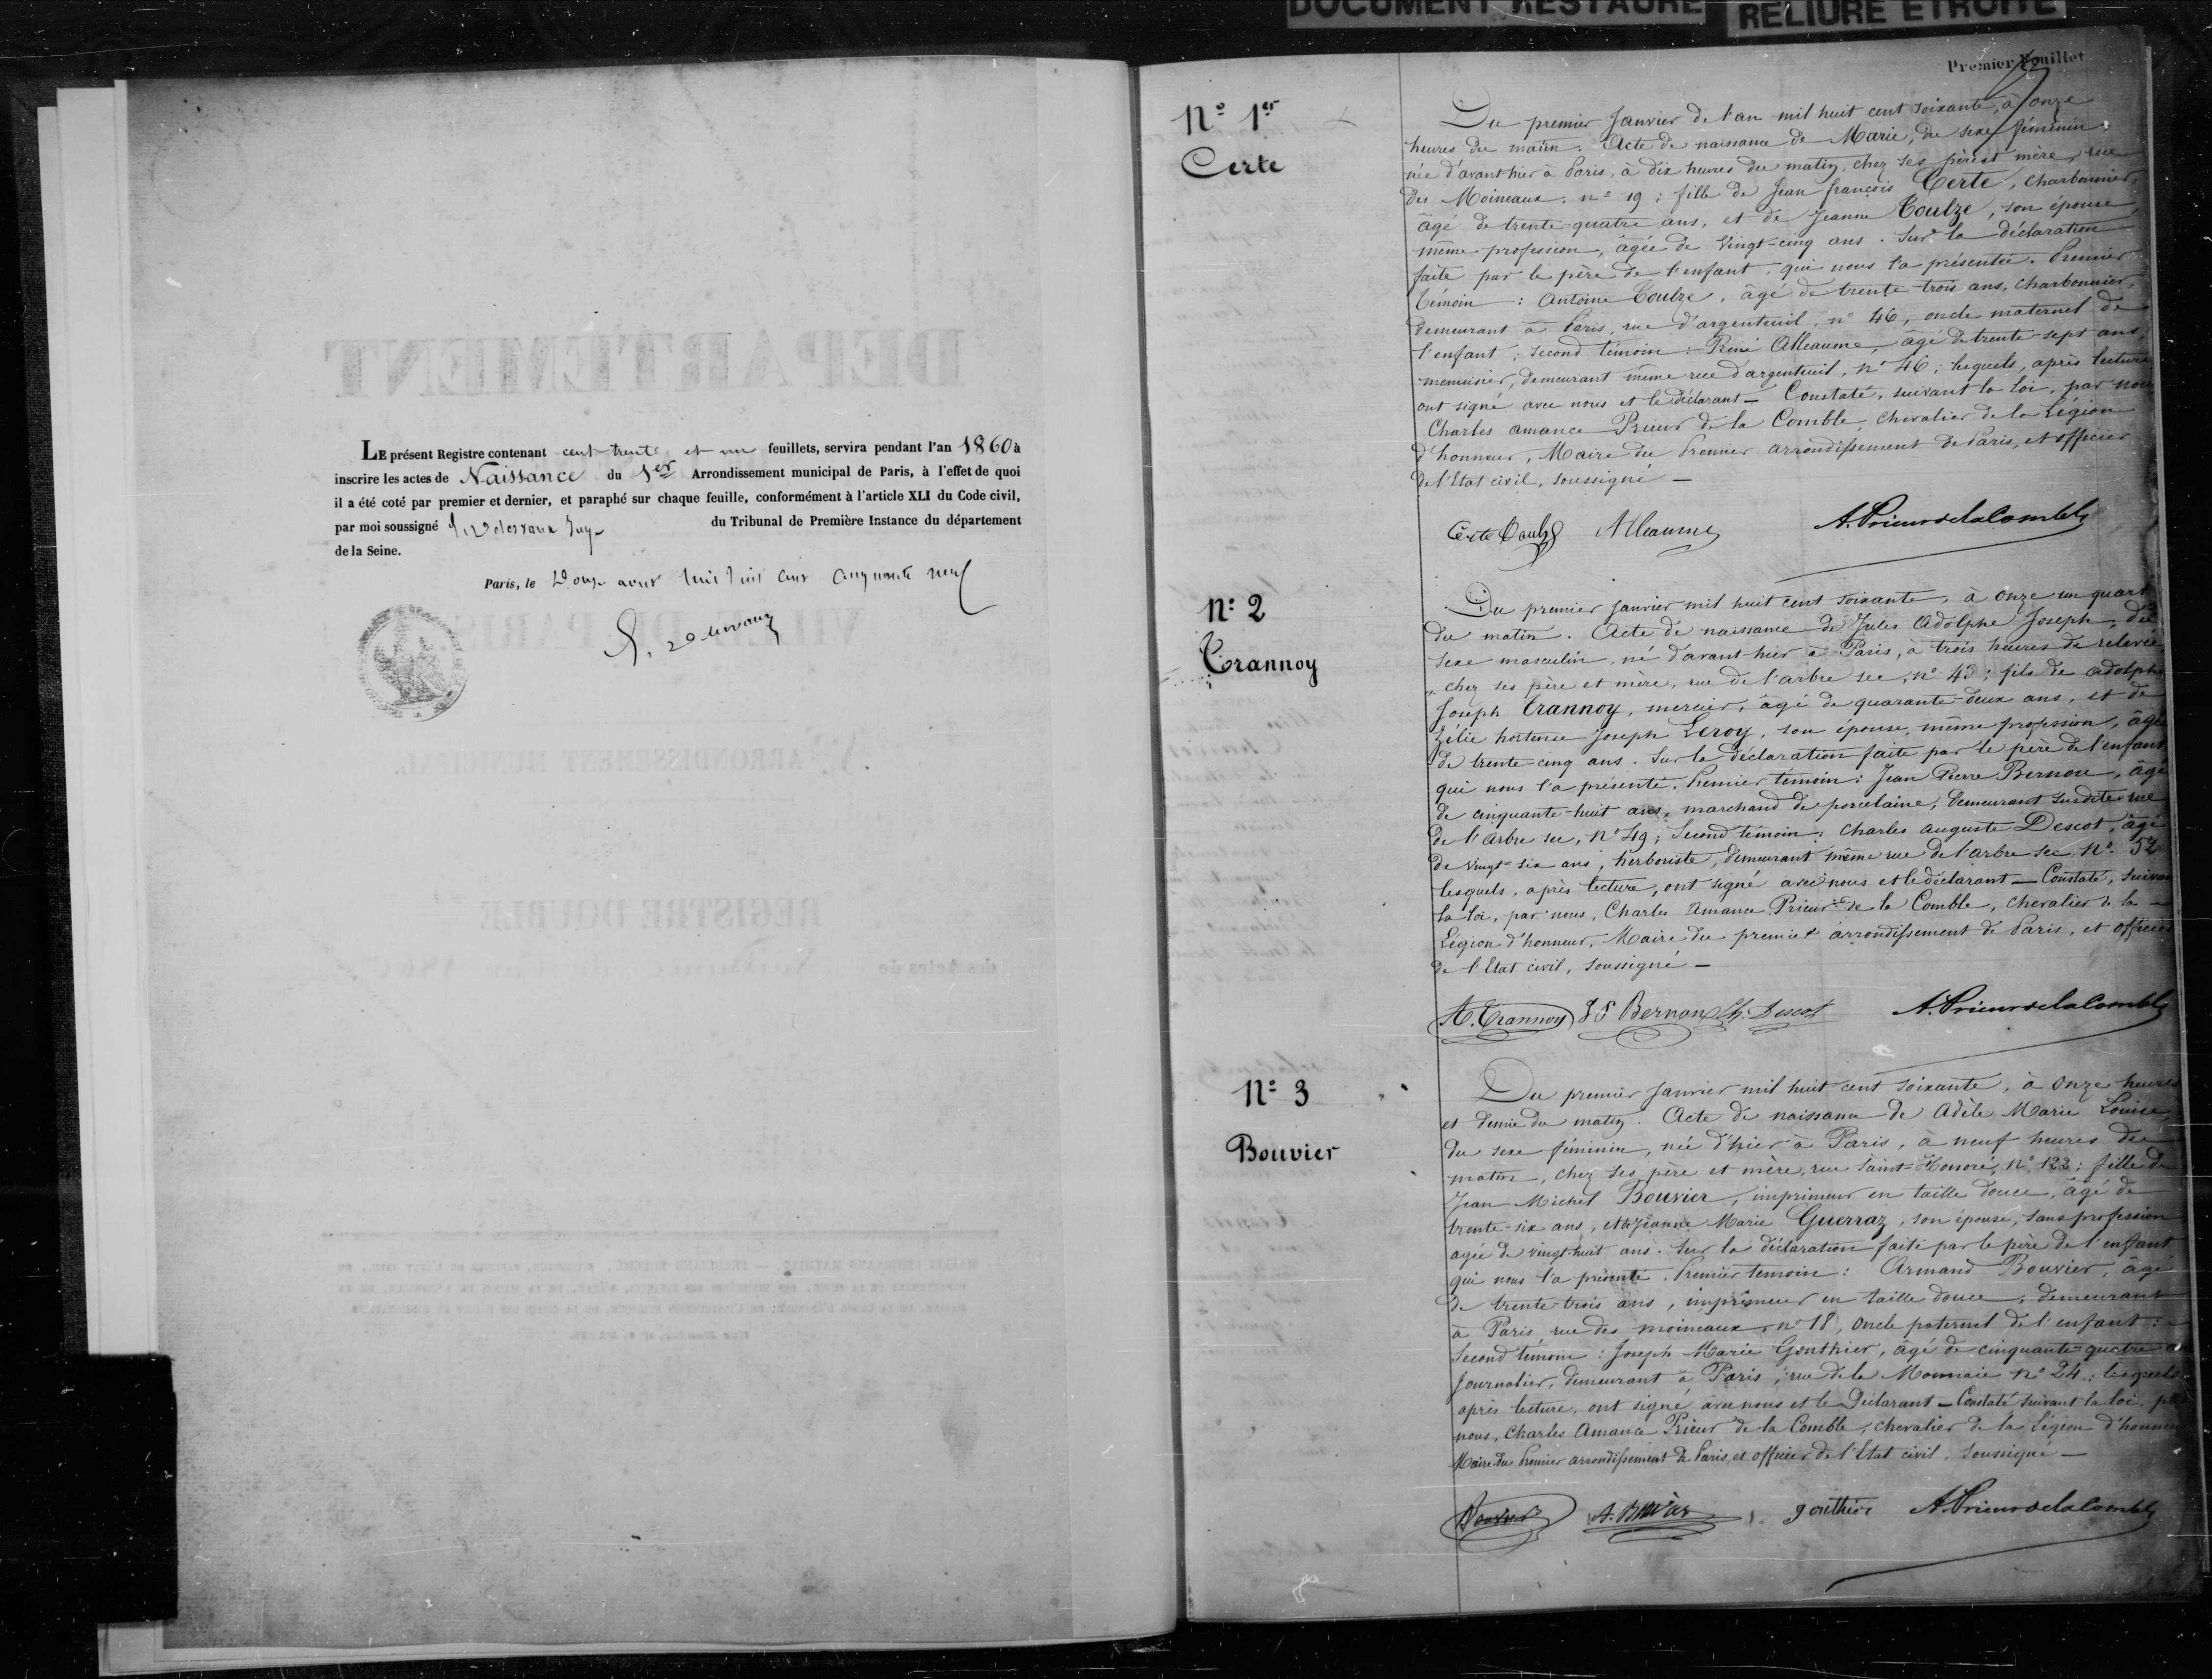 DOCUMENT RESTAURÉ
RELIURE ETROITE
LE présent Registre contenant cent trente et un feuillets, servira pendant l'an 1860 à
inscrire les actes de Naissance du 1er Arrondissement municipal de Paris, à l'effet de quoi
il a été coté par premier et dernier, et paraphé sur chaque feuille, conformément à l'article XLI du Code civil,
par moi soussigné du Tribunal de Première Instance du département
de la Seine.
Paris, le Douze mil huit cent cinquante neuf
Premier Feuillet
N° 1er
Certe
Du premier Janvier de l'an mil huit cent soixante, à onze
heures du matin. Acte de naissance de Marie, du sexe féminin,
née d'avant hier à Paris, à dix heures du matin, chez ses père et mère, rue
des Moineaux, n° 19 ; fille de Jean françois Certe, Charbonnier,
âgé de trente-quatre ans, et de Jeanne Coulze, son épouse,
même profession, âgée de vingt-cinq ans. Sur la déclaration
faite par le père de l'enfant, qui nous l'a présentée. Premier
témoin : Antoine Coulze, âgé de trente-trois ans, charbonnier,
demeurant à Paris, rue d'argenteuil, n° 46, oncle maternel de
l'enfant ; second témoin : René Alleaume, âgé de trente-sept ans,
menuisier, demeurant même rue d'argenteuil, n° 46 ; lesquels, après lecture
ont signé avec nous et le déclarant — Constaté, suivant la loi, par nous
Charles amance Prieur de la Comble, chevalier de la Légion
d'honneur, Maire du Premier arrondissement de Paris, et officier
de l'Etat civil, soussigné —
Certe Coulze Alleaume A. Prieur de la Comble
N° 2
Trannoy
Du premier Janvier mil huit cent soixante, à onze un quart
du matin. Acte de naissance de Jules Adolphe Joseph, du
sexe masculin, né d'avant-hier à Paris, à trois heures de relevée
chez ses père et mère, rue de l'arbre sec, n° 43 ; fils de adolphe
Joseph Trannoy, mercier, âgé de quarante-deux ans, et de
Zélie hortense Joseph Leroy, son épouse, même profession, âgée
de trente-cinq ans. Sur la déclaration faite par le père de l'enfant
qui nous l'a présenté. Premier témoin : Jean Pierre Bernon, âgé
de cinquante-huit ans, marchand de porcelaine, demeurant susdite rue
de l'Arbre sec, N° 49 ; Second témoin : Charles auguste Descot, âgé
de vingt-six ans, herboriste, demeurant même rue de l'arbre sec N° 52
lesquels, après lecture, ont signé avec nous et le déclarant — Constaté, suivant
la loi, par nous, Charles Amance Prieur de la Comble, chevalier de la —
Légion d'honneur, Maire du premier arrondissement de Paris, et officier
de l'Etat civil, soussigné —
A. Trannoy J P Bernon Ch. Descot A. Prieur de la Comble
N° 3
Bouvier
Du premier Janvier mil huit cent soixante, à onze heures
et demie du matin. Acte de naissance de Adèle Marie Louise,
du sexe féminin, née d'hier à Paris, à neuf heures du
matin, chez ses père et mère, rue Saint-Honoré, N° 122 ; fille de
Jean Michel Bouvier, imprimeur en taille douce, âgé de
trente-six ans, et de Jeanne Marie Guerraz, son épouse, sans profession
agée de vingt-huit ans. Sur la déclaration faite par le père de l'enfant
qui nous l'a présenté. Premier temoin : Armand Bouvier, âgé
de trente-trois ans, imprimeur en taille douce, demeurant
à Paris, rue des moineaux, n° 18, oncle paternel de l'enfant :
Second témoin : Joseph Marie Gonthier, âgé de cinquante-quatre a
Journalier, demeurant à Paris, rue de la Monnaie N° 24 ; lesquels
après lecture, ont signé avec nous et le Déclarant — Constaté suivant la loi, par
nous, Charles Amance Prieur de la Comble, chevalier de la Légion d'honneur
Maire du Premier arrondissement de Paris, et officier de l'Etat civil, soussigné —
Bouvier A. Bouvier gonthier A. Prieur de la Comble